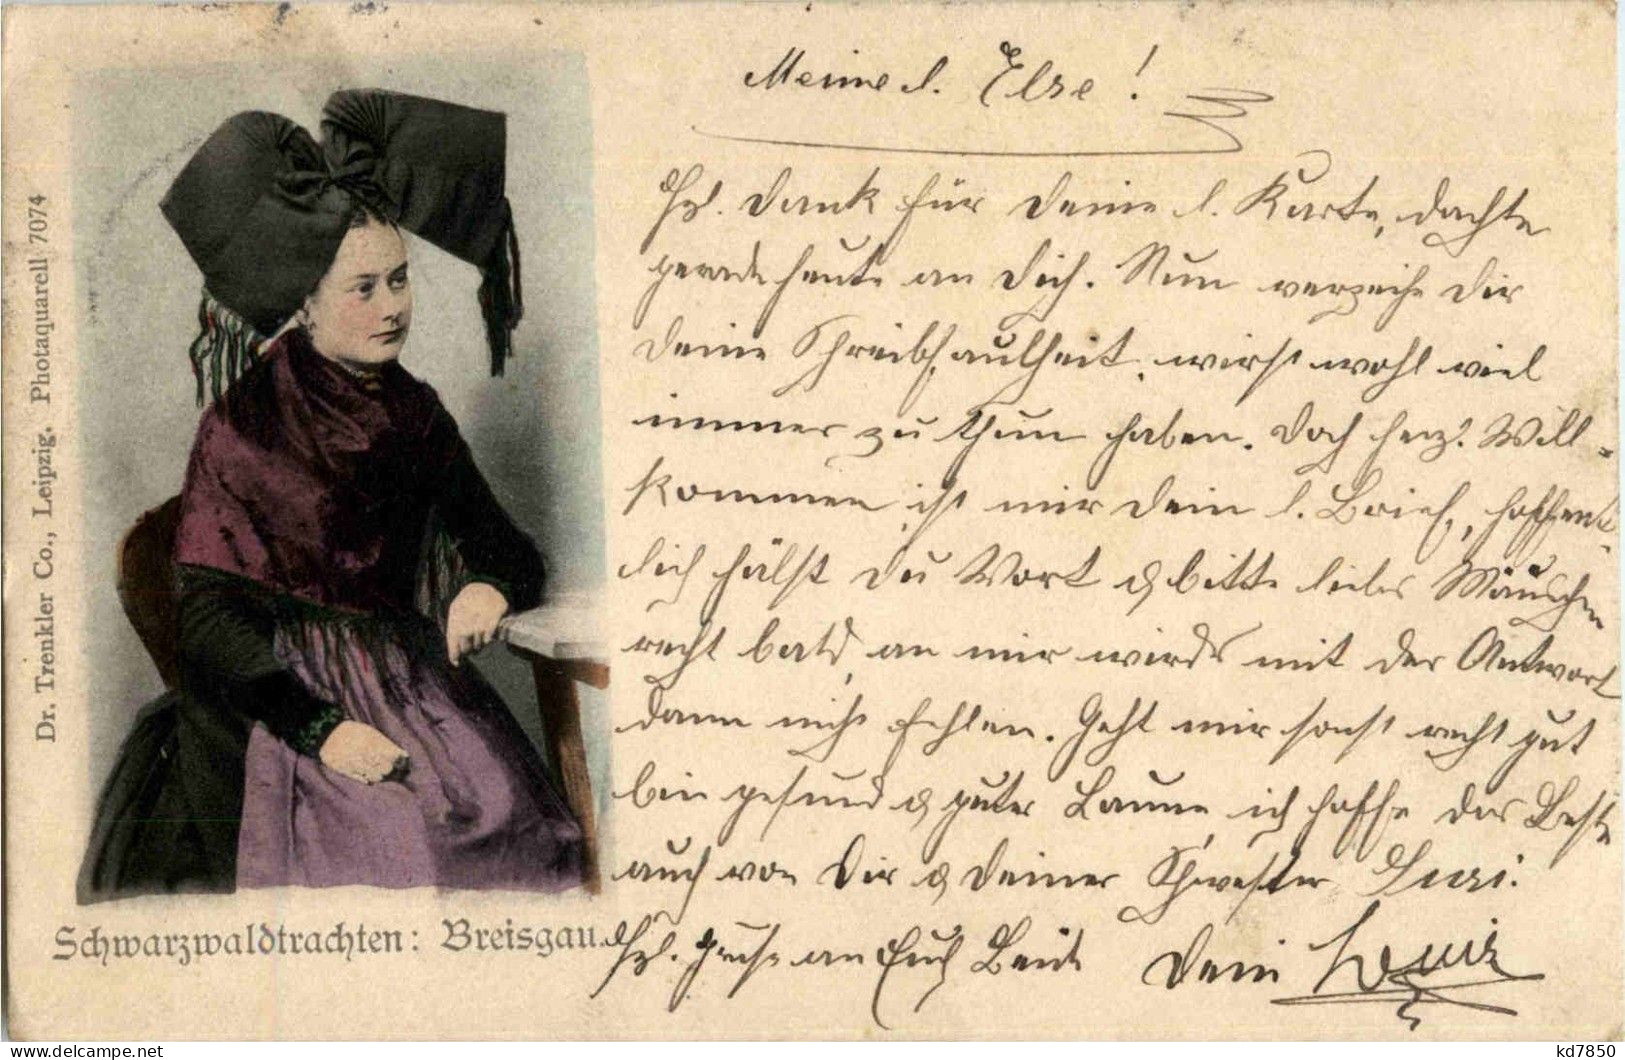 Meine l. Else!
Hzl. Dank für Deine l. Karte, dachte
gerade heute an Dich. Nun verzeihe Dir
Deine Schreibfaulheit, wirst wohl viel
immer zu thun haben. Doch herzl. Will-
kommen ist mir Dein l. Brief, hoffent-
lich hälst Du Wort & bitte liebes Mäuschen
recht bald, an mir wirds mit der Antwort
dann nicht fehlen. Geht mir sonst recht gut
bin gesund & guter Laune, ich hoffe das Beste
auch von Dir & Deiner Schwester
Hzl. Grüsse an Euch Beide Dein
Schwarzwaldtrachten: Breisgau.
Dr. Trenkler Co., Leipzig. Photaquarell 7074
kd7850